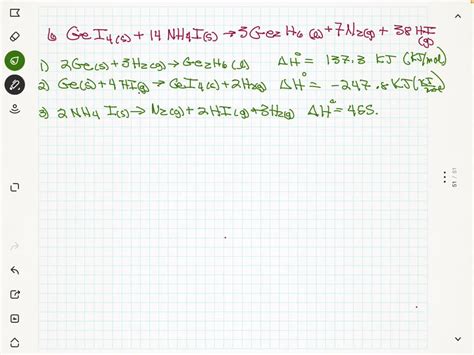 6 GeI4(s) + 14 NH4I(s) → 3Ge2H6(l) + 7N2(g) + 38HI(g)
1) 2Ge(s) + 3H2(g) → Ge2H6(l) ΔH° = 137.3 KJ (KJ/mol)
2) Ge(s) + 4HI(g) → GeI4(s) + 2H2(g) ΔH° = -247.8 KJ (KJ/mol)
3) 2NH4 I(s) → N2(g) + 2HI(g) + 3H2(g) ΔH° = 465.
15 / 15